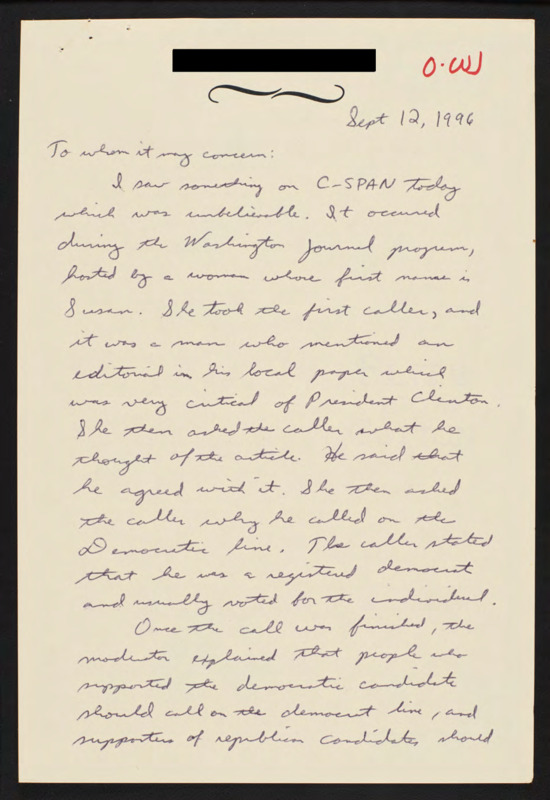 O.W
Sept 12, 1996
To whom it may concern:
I saw something on C-SPAN today
which was unbelievable. It occured
during the Washington Journal program,
hosted by a woman whose first name is
Susan. She took the first caller, and
it was a man who mentioned an
editorial in his local paper which
was very critical of President Clinton.
She then asked the caller what he
thought of the article. He said that
he agreed with it. She then asked
the caller why he called on the
Democratic line. The caller stated
that he was a registered democrat
and usually voted for the individual.
Once the call was finished, the
moderator explained that people who
supported the democratic candidate
should call on the democrat line, and
supporters of republican candidates should